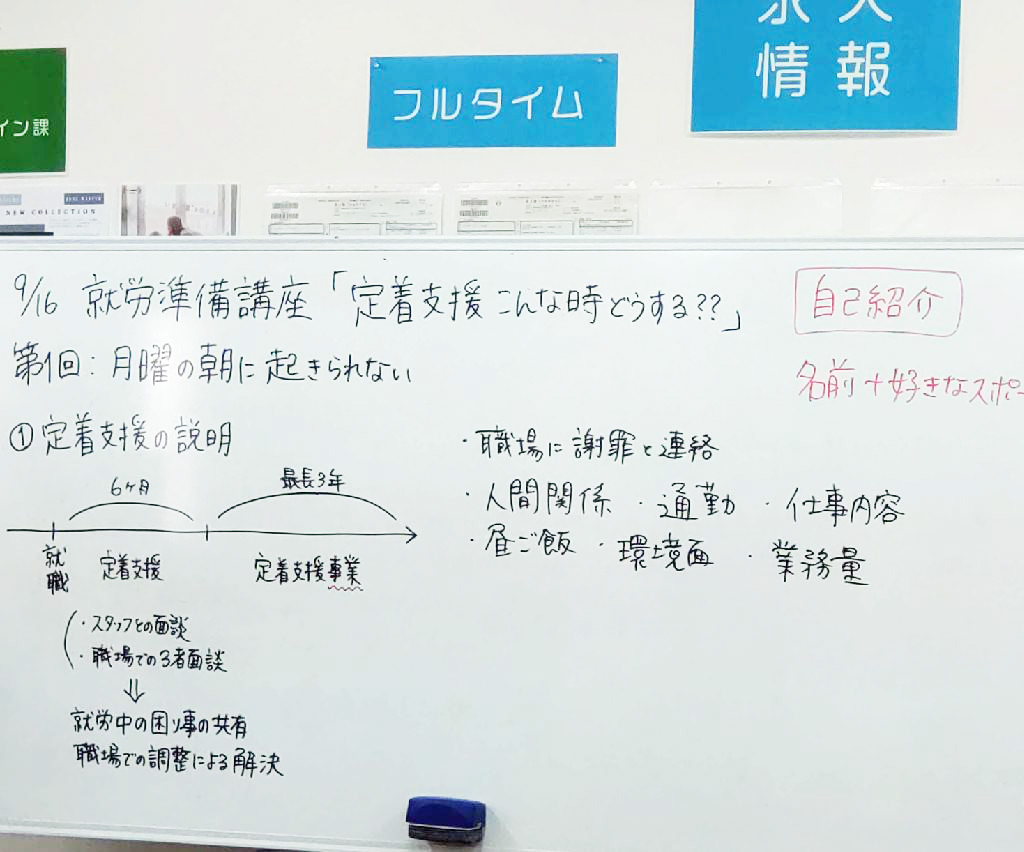 求人
情報
フルタイム
イン課
NEW COLLECTION
9/16 就労準備講座「定着支援こんな時どうする??」
自己紹介
第1回:月曜の朝に起きられない
名前+好きなスポー
①定着支援の説明
6ヶ月
最長3年
就職
定着支援
定着支援事業
・スタッフとの面談
・職場での3者面談
⇓
就労中の困り事の共有
職場での調整による解決
・職場に謝罪と連絡
・人間関係 ・通勤 ・仕事内容
・昼ご飯 ・環境面 ・業務量